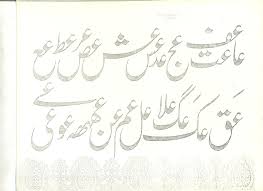 عا عج عد عس عش عص عر عط عع
عق عک عگ علا عل عم عن عو عی